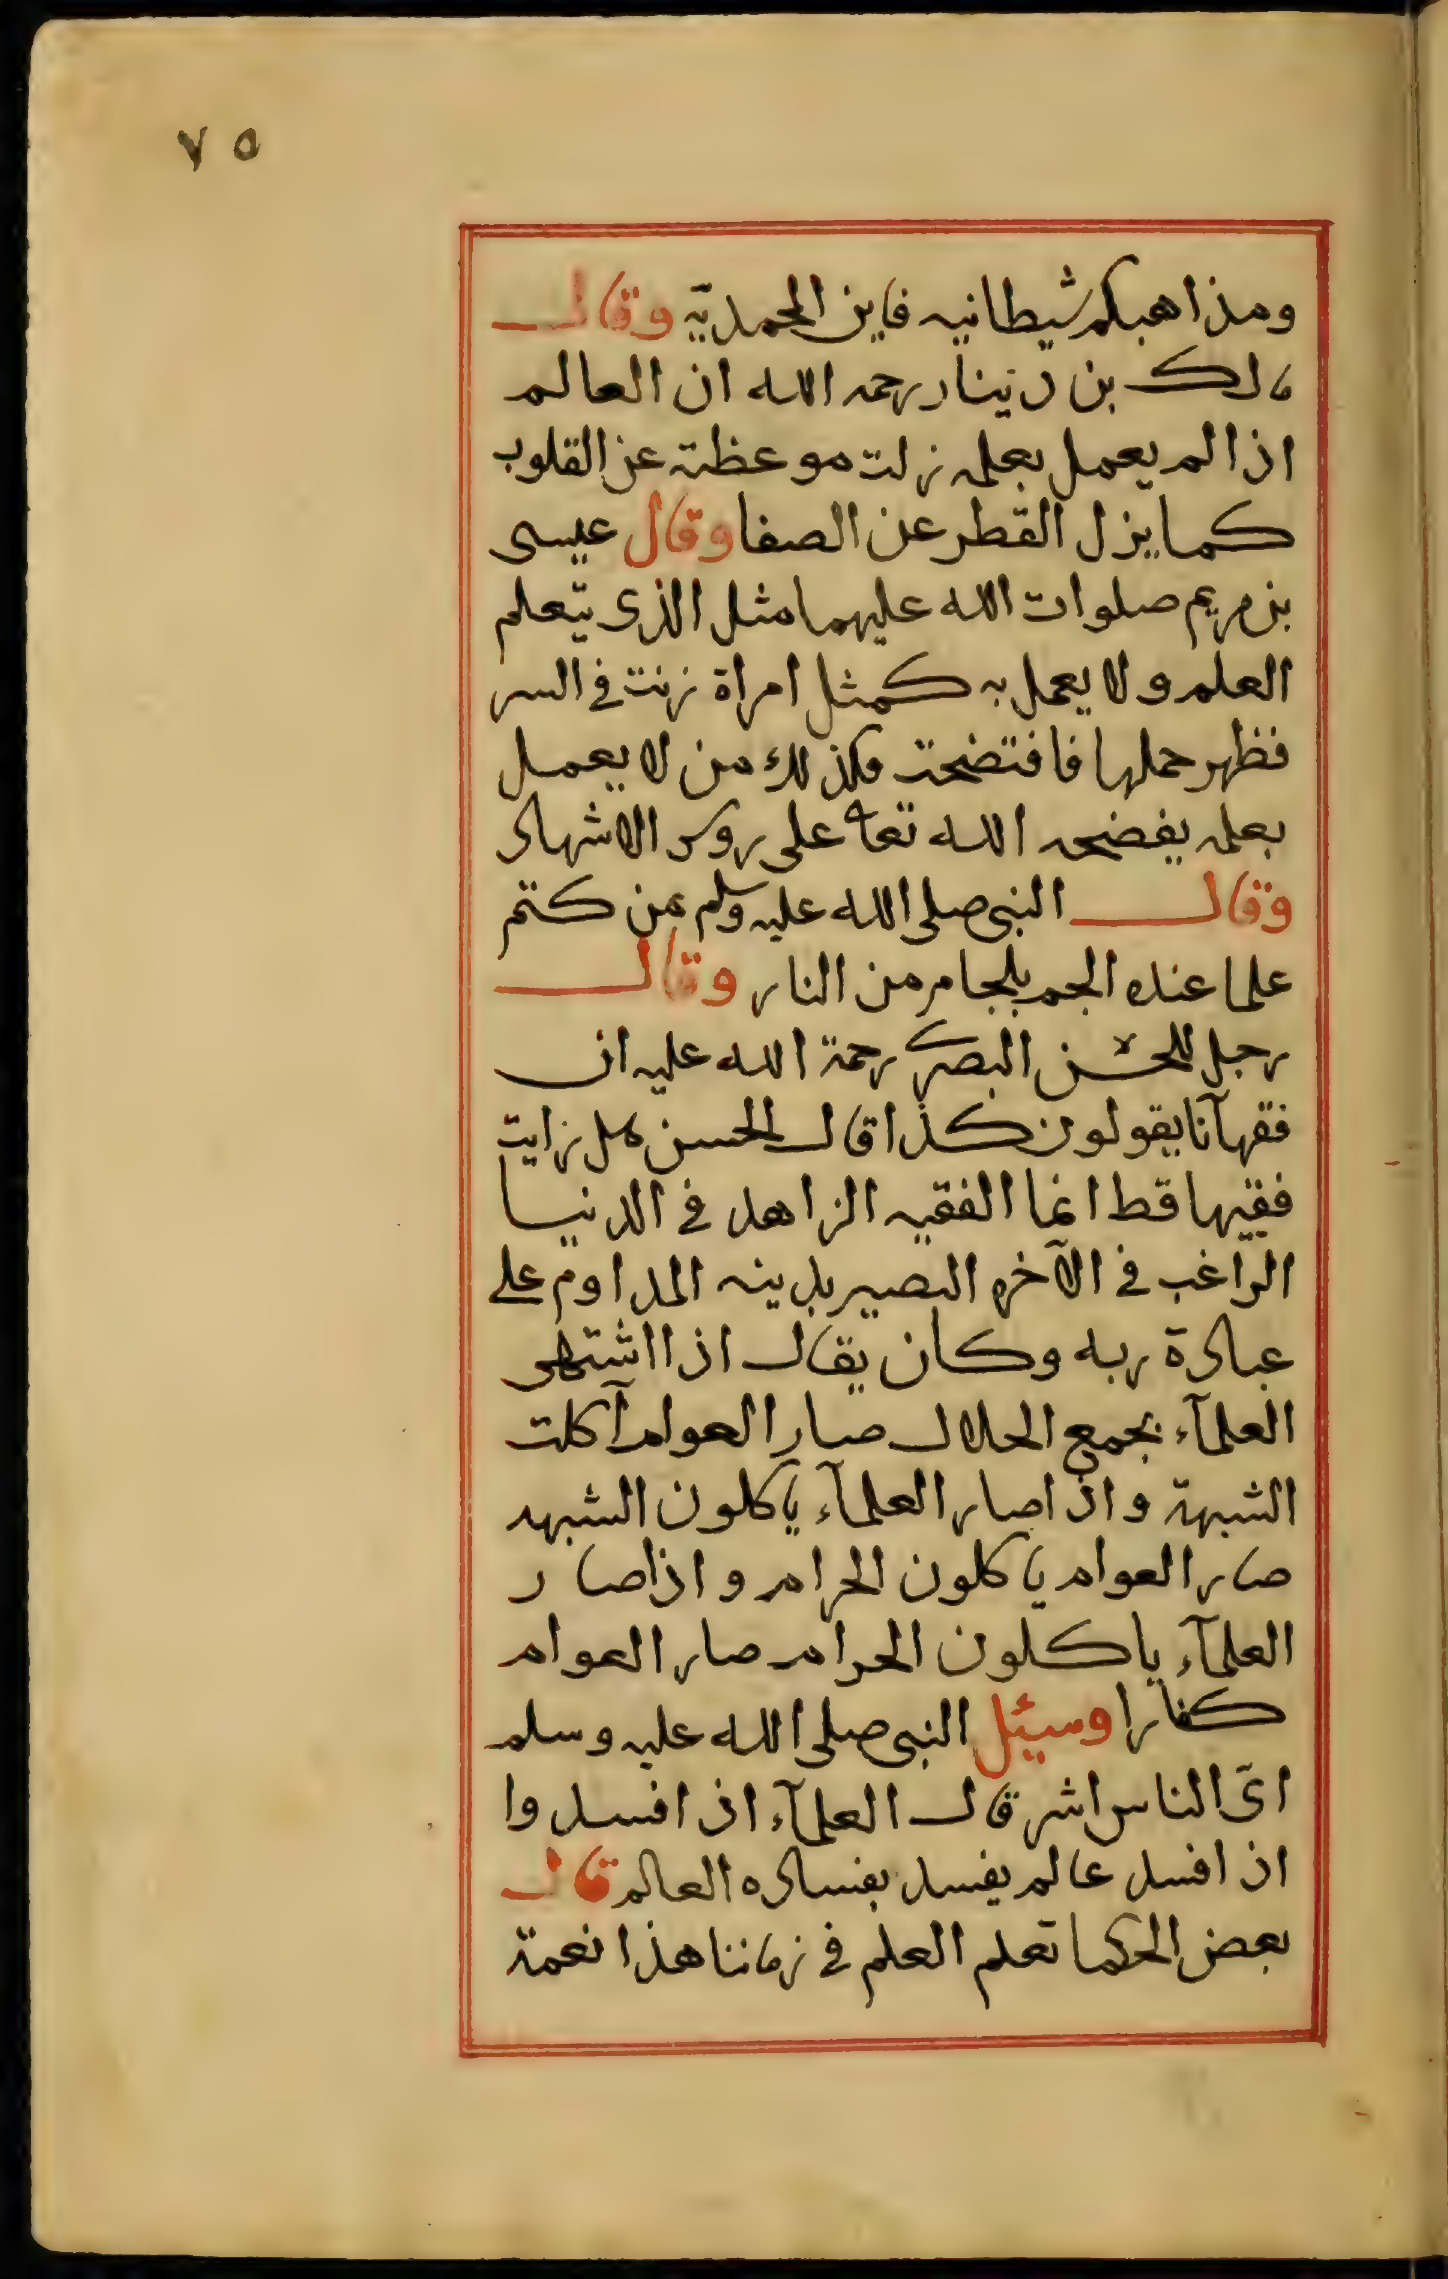 ٧٥
ومذاهبكم شيطانيه فاين المحمديّه وقال
مالك بن دينار رحمه الله ان العالم
اذا لم يعمل بعلمه زلت موعظته عن القلوب
كما يزل القطر عن الصفا وقال عيسى
بن مريم صلوات الله عليهما مثل الذى يتعلم
العلم ولا يعمل به كمثل امراة زنت في السر
فظهر حملها فافتضحت فكذلك من لا يعمل
بعلمه يفضحه الله تعا على روس الاشهاد
وقال النبى صلى الله عليه وسلم من كتم
علما عنده الجم بلجام من النار وقال
رجل للحسن البصرى رحمة الله عليه ان
فقهآنا يقولون كذا قال الحسن هل رايت
فقيها قط انما الفقيه الزاهد في الدنيا
الراغب في الآخره البصير بدينه المداوم على
عبادة ربه وكان يقال اذا اشتهى
العلمآء بجمع الحلال صار العوام آكلت
الشبهة واذا صار العلمآء ياكلون الشبهه
صار العوام ياكلون الحرام واذا صار
العلمآء ياكلون الحرام صار العوام
كفارا وسئيل النبى صلى الله عليه وسلم
اىّ الناس اشر قال العلمآء اذا فسدوا
اذا فسد عالم يفسد بفساده العالم قال
بعض الحكما تعلم العلم في زماننا هذا نعمة